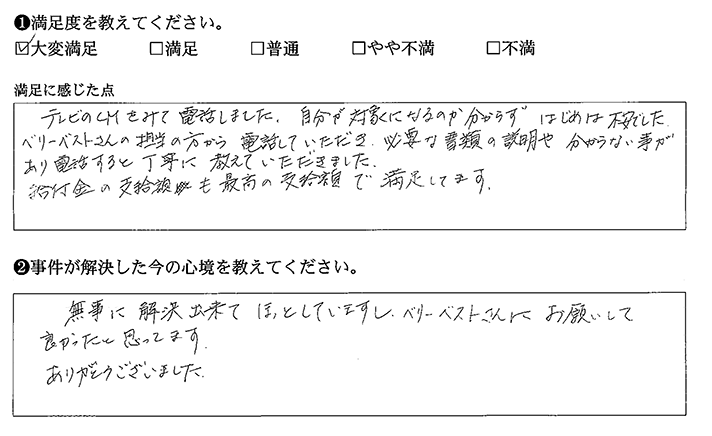 ❶満足度を教えてください。
☑大変満足 □満足 □普通 □やや不満 □不満
満足に感じた点
テレビのCMをみて電話しました。自分が対象になるのか分からず はじめは不安でした。
ベリーベストさんの担当の方から 電話していただき、必要な書類の説明や 分からない事が
あり電話すると丁寧に 教えていただきました。
給付金の支給額も最高の支給額で満足してます。
❷事件が解決した今の心境を教えてください。
無事に解決出来て ほっとしていますし、ベリーベストさんに お願いして
良かったと思ってます。
ありがとうございました。